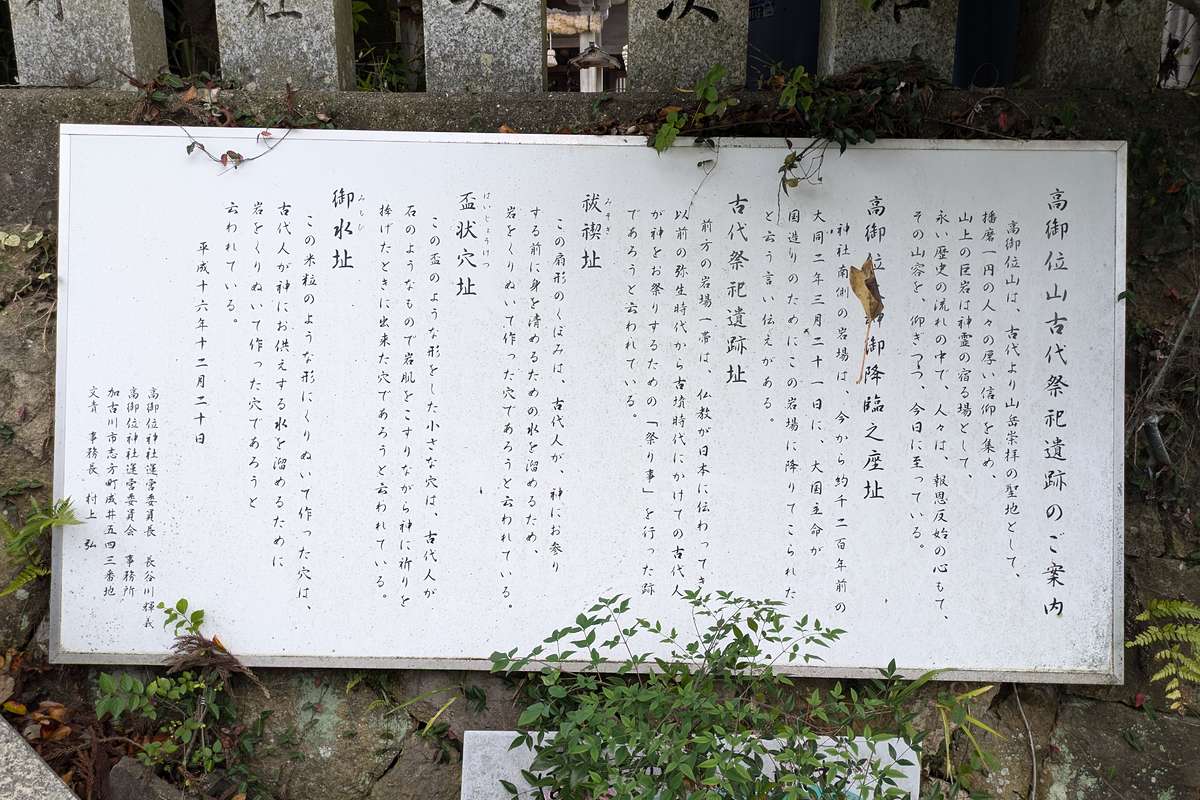 高御位山古代祭祀遺跡のご案内
高御位山は、古代より山岳崇拝の聖地として、
播磨一円の人々の厚い信仰を集め、
山上の巨岩は神霊の宿る場として、
永い歴史の流れの中で、人々は、報恩反始の心もて、
その山容を、仰ぎつつ、今日に至っている。
高御位 御降臨之座址
神社南側の岩場は、今から約千二百年前の
大同二年三月二十一日に、大国主命が
国造りのためにこの岩場に降りてこられた
と云う言い伝えがある。
古代祭祀遺跡址
前方の岩場一帯は、仏教が日本に伝わってき
以前の弥生時代から古墳時代にかけての古代人
が神をお祭りするための「祭り事」を行った跡
であろうと云われている。
祓禊址
みそぎ
この扇形のくぼみは、古代人が、神にお参り
する前に身を清めるための水を溜めるため、
岩をくりぬいて作った穴であろうと云われている。
盃状穴址
はいじょうけつ
この盃のような形をした小さな穴は、古代人が
石のようなもので岩肌をこすりながら神に祈りを
捧げたときに出来た穴であろうと云われている。
御水址
この米粒のような形にくりぬいて作った穴は、
古代人が神にお供えする水を溜めるために
岩をくりぬいて作った穴であろうと
云われている。
平成十六年十二月二十日
高御位神社運営委員長 長谷川輝義
高御位神社運営委員会 事務所
加古川市志方町成井五四三番地
文責 事務長 村上 弘